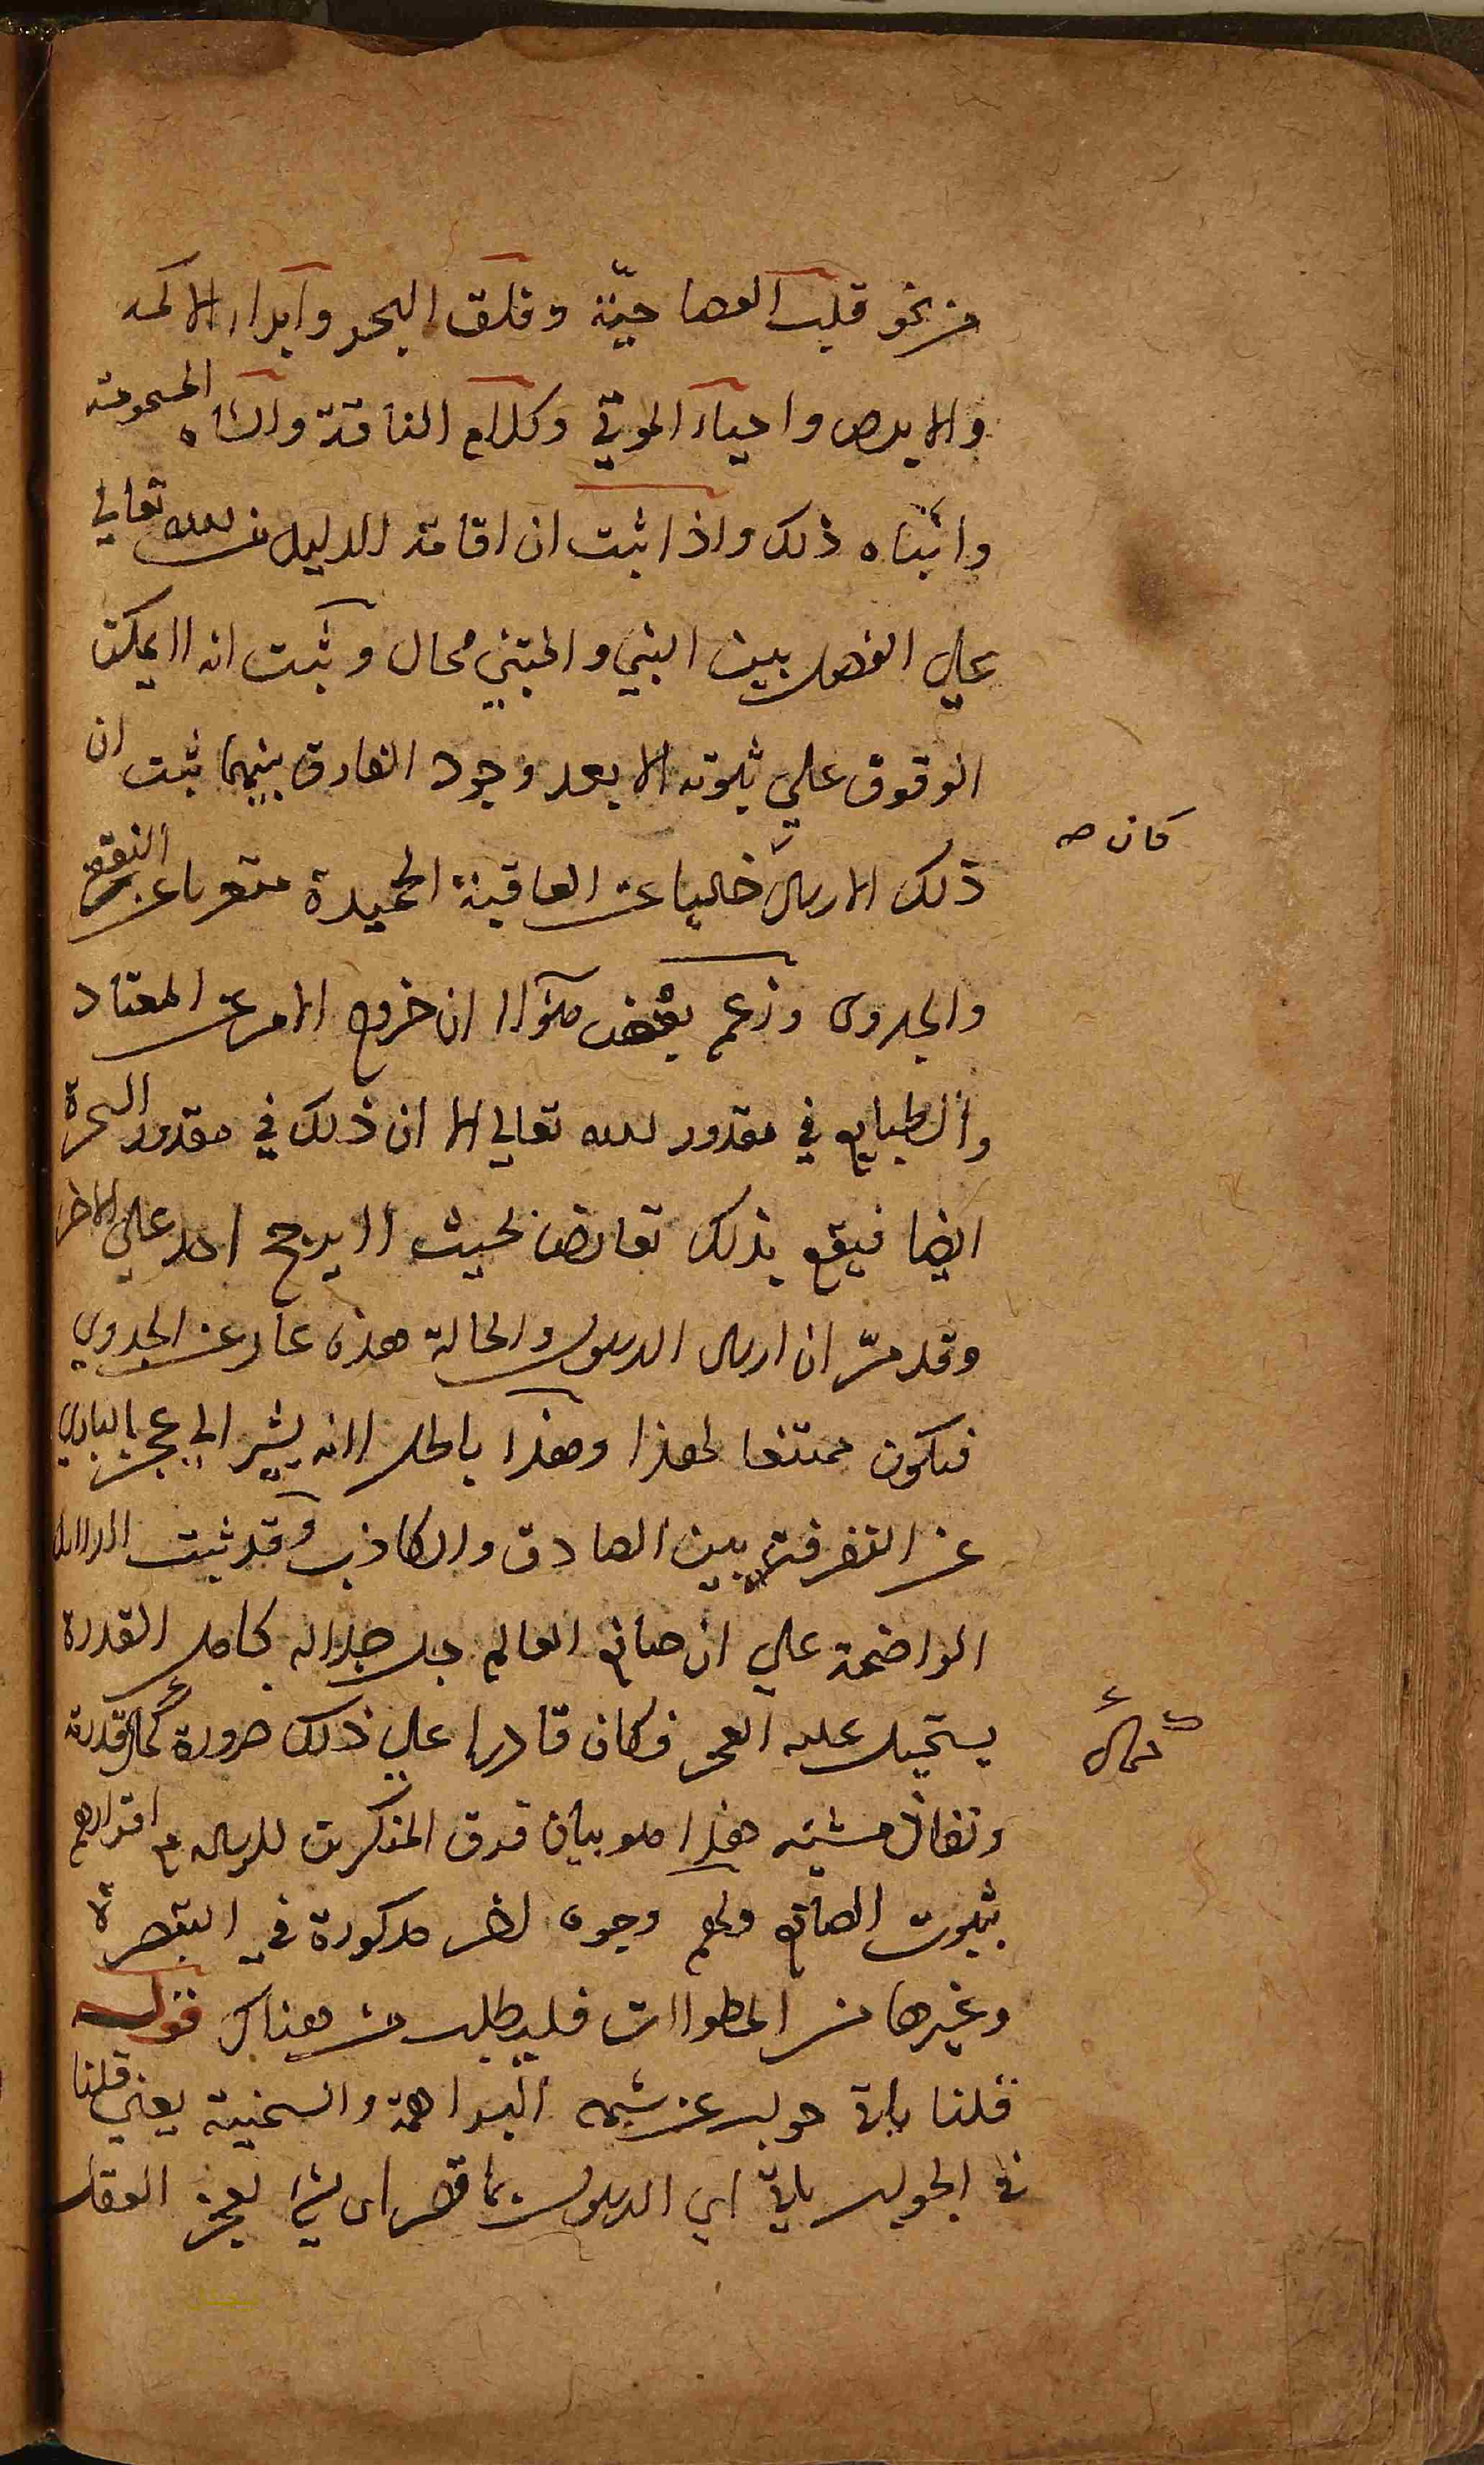 من نحو قلب العصا حيّة وفلق البحر وابراء الاكمه
والابرص واحياء الموتي وكلام الناقة والشاه المسمومة
واشباه ذلك واذا ثبت ان اقامة الدليل من الله تعالي
علي الفصل بين النبي والمتنبي محال وثبت انه لا يمكن
الوقوف علي ثبوته الا بعد وجود الفارق بينهما ثبت ان
كان صح
ذلك الارسال خاليا عن العاقبة الحميدة متعريا عن النفع
والجدوى وزعم بعض هؤلاء ان خروج الامر عن المعتاد
والطبايع في مقدور الله تعالي الا ان ذلك في مقدور السحرة
ايضا فيقع بذلك تعارض بحيث لا يرجح احد علي الاخر
وقد مرّ ان ارسال الرسول والحالة هذه عار عن الجدوي
فيكون ممتنعا لهذا وهذا باطل لانه يشير الي عجز الباري
عن التفرقة بين الصادق والكاذب وقد ثبت الدلايل
الواضحة علي ان صانع العالم جل جلاله كامل القدرة
يستحيل عليه العجز فكان قادرا علي ذلك ضرورة كمال قدرته
كمال
ونفاذ مشيته هذا هو بيان فرق المنكرين للرساله مع اقرارهم
بثبوت الصانع ولهم وجوه اخر مذكورة في التبصرة
وغيرها من المطولات فليطلب من هناك قوله
قلنا يأتي جواب عن شبهه البراهمة والسمنية يعني قلنا
في الجواب يأتي اي الرسول بما قصر اي بشئ يعجز العقل